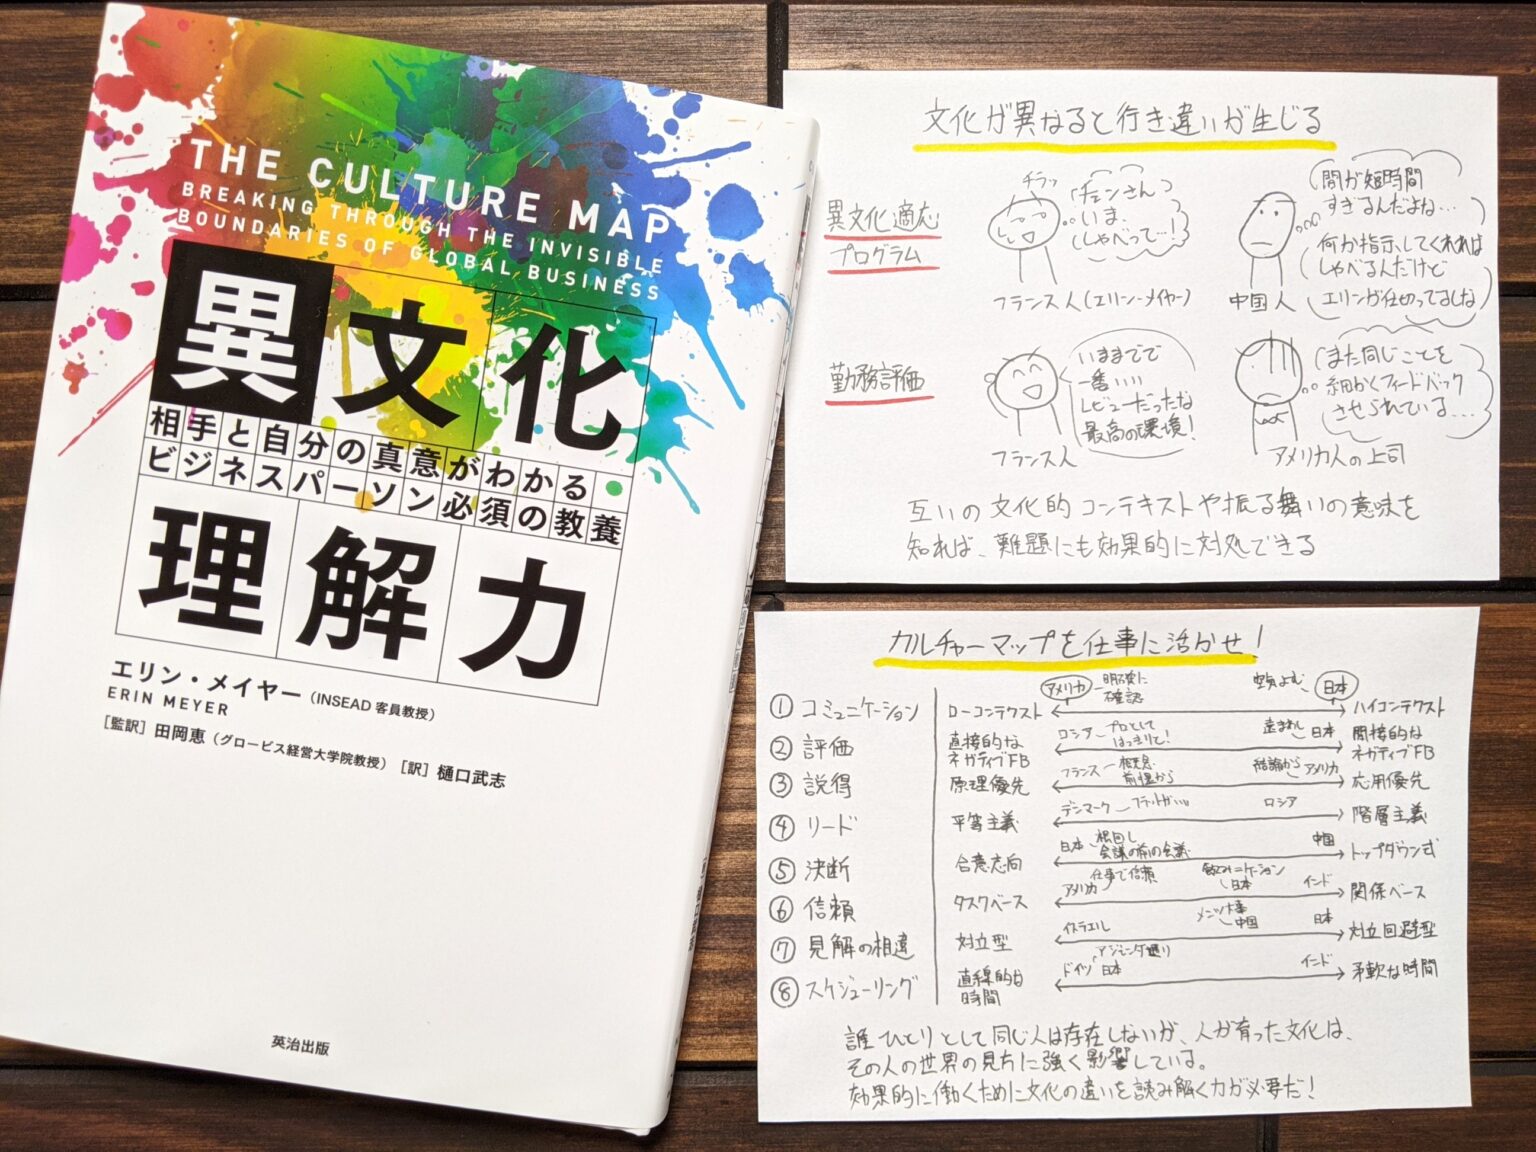 THE CULTURE MAP
BREAKING THROUGH THE INVISIBLE
BOUNDARIES OF GLOBAL BUSINESS
異文化
相手と自分の真意がわかる
ビジネスパーソン必須の教養
理解力
エリン・メイヤー（INSEAD 客員教授）
ERIN MEYER
［監訳］田岡恵（グロービス経営大学院教授）［訳］樋口武志
英治出版
文化が異なると行き違いが生じる
異文化適応
プログラム
チラッ
チェンさん
いま、
しゃべって…！
フランス人（エリン・メイヤー）
間が短時間
すぎるんだよね…
何か指示してくれれば
しゃべるんだけど
エリンが仕切ってるしな
中国人
勤務評価
いままでで
一番いい
レビューだったな
最高の環境！
フランス人
また同じことを
細かくフィードバック
させられている…
アメリカ人の上司
互いの文化的コンテキストや振る舞いの意味を
知れば、難題にも効果的に対処できる
カルチャーマップを仕事に活かせ！
① コミュニケーション
ローコンテクスト
アメリカ
明確に
確認
空気よむ
日本
ハイコンテクスト
② 評価
直接的な
ネガティブFB
ロシア
プロとして
はっきりと！
日本
間接的な
ネガティブFB
③ 説得
原理優先
フランス
前提から
結論から
アメリカ
応用優先
④ リード
平等主義
デンマーク
フラットがいい
ロシア
階層主義
⑤ 決断
合意志向
日本
根回し
会議の前の会議
中国
トップダウン式
⑥ 信頼
タスクベース
アメリカ
仕事で信頼
飲みニケーション
日本
インド
関係ベース
⑦ 見解の相違
対立型
イスラエル
メンツ大事
中国
日本
対立回避型
⑧ スケジューリング
直線的な
時間
ドイツ
日本
アジェンダ通り
インド
柔軟な時間
誰ひとりとして同じ人は存在しないが、人が育った文化は、
その人の世界の見方に強く影響している。
効果的に働くために文化の違いを読み解く力が必要だ！